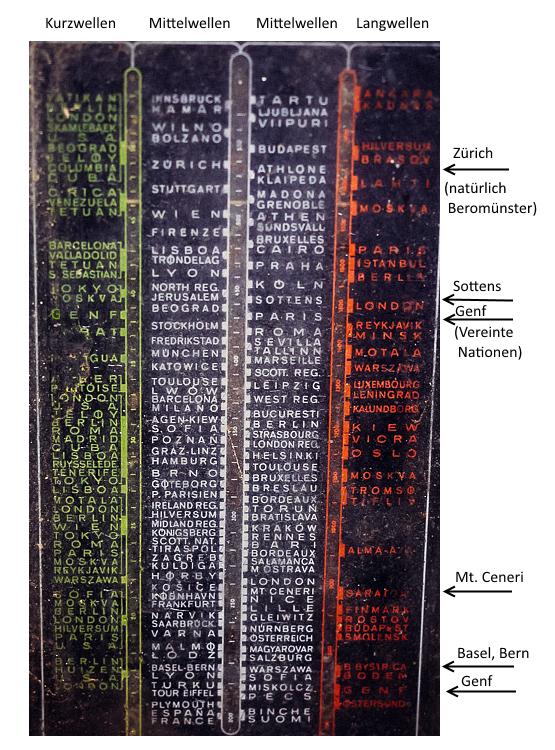 Kurzwellen
Mittelwellen
Mittelwellen
Langwellen
VATIKAN
BERLIN
LONDON
SKAMLEBAEK
U S A
BEOGRAD
BELOY
COLUMBIA
CUBA
C. RICA
VENEZUELA
TETUAN
BARCELONA
VALLADOLID
TETUAN
S. SEBASTIAN
TOKYO
MOSKVA
GENF
GUA
LONDON
BERLIN
ROMA
MADRID
LISBOA
RUYSSELEDE
TENERIFE
TOKYO
LISBOA
MOTALA
LONDON
BERLIN
WIEN
TOKYO
ROMA
PARIS
MOSKVA
REYKJAVIK
WARSZAWA
SOFIA
MOSKVA
BERLIN
LONDON
HILVERSUM
PARIS
BERLIN
LUIZEN
LONDON
INNSBRUCK
HAMAR
WILNO
BOLZANO
ZÜRICH
STUTTGART
WIEN
FIRENZE
LISBOA
TRØNDELAG
LYON
NORTH REG.
JERUSALEM
BEOGRAD
STOCKHOLM
FREDRIKSTAD
MÜNCHEN
KATOWICE
TOULOUSE
LWOW
BARCELONA
MILANO
AGEN-KIEW
SOFIA
POZNAN
GRAZ-LINZ
HAMBURG
BRNO
GÖTEBORG
P. PARISIEN
IRELAND REG.
HILVERSUM
MIDLAND REG.
KÖNIGSBERG
SCOTT. NAT.
TIRASPOL
ZAGREB
KULDIGA
HØRBY
KOŠICE
KØBENHAVN
FRANKFURT
NARVIK
SAARBRÜCK
VARNA
MALMÖ
LODZ
BASEL-BERN
LYON
TURKU
TOUR EIFFEL
PLYMOUTH
ESPAÑA
FRANCE
TARTU
LJUBLJANA
VIIPURI
BUDAPEST
ATHLONE
KLAIPEDA
MADONA
GRENOBLE
ATHEN
SUNDSVALL
BRUXELLES
CAIRO
PRAHA
KÖLN
SOTTENS
PARIS
ROMA
SEVILLA
TALLINN
MARSEILLE
SCOTT. REG.
LEIPZIG
WEST REG.
BUCURESTI
BERLIN
STRASBOURG
LONDON REG.
HELSINKI
TOULOUSE
BRUXELLES
BRESLAU
BORDEAUX
TORUŃ
BRATISLAVA
KRAKÓW
RENNES
BARI
BORDEAUX
SALAMANCA
M. OSTRAVA
LONDON
MT CENERI
NICE
LILLE
GLEIWITZ
NÜRNBERG
ÖSTERREICH
MAGYAROVAR
SALZBURG
WARSZAWA
SOFIA
MISKOLCZ.
PECS
BINCHE
SUOMI
ANKARA
KAUNAS
HILVERSUM
BRASOV
LAHTI
MOSKVA
PARIS
ISTANBUL
BERLIN
LONDON
REYKJAVIK
MINSK
MOTALA
WARSZAWA
LUXEMBOURG
LENINGRAD
KALUNDBORG
KIEW
VICRA
OSLO
MOSKVA
TROMSØ
TIFLIS
ALMA-A
SARATOV
FINMARK
ROSTOV
BUDAPEST
SMOLENSK
BODEN
GENF
ÖSTERSUND
Zürich
(natürlich
Beromünster)
Sottens
Genf
(Vereinte
Nationen)
Mt. Ceneri
Basel, Bern
Genf